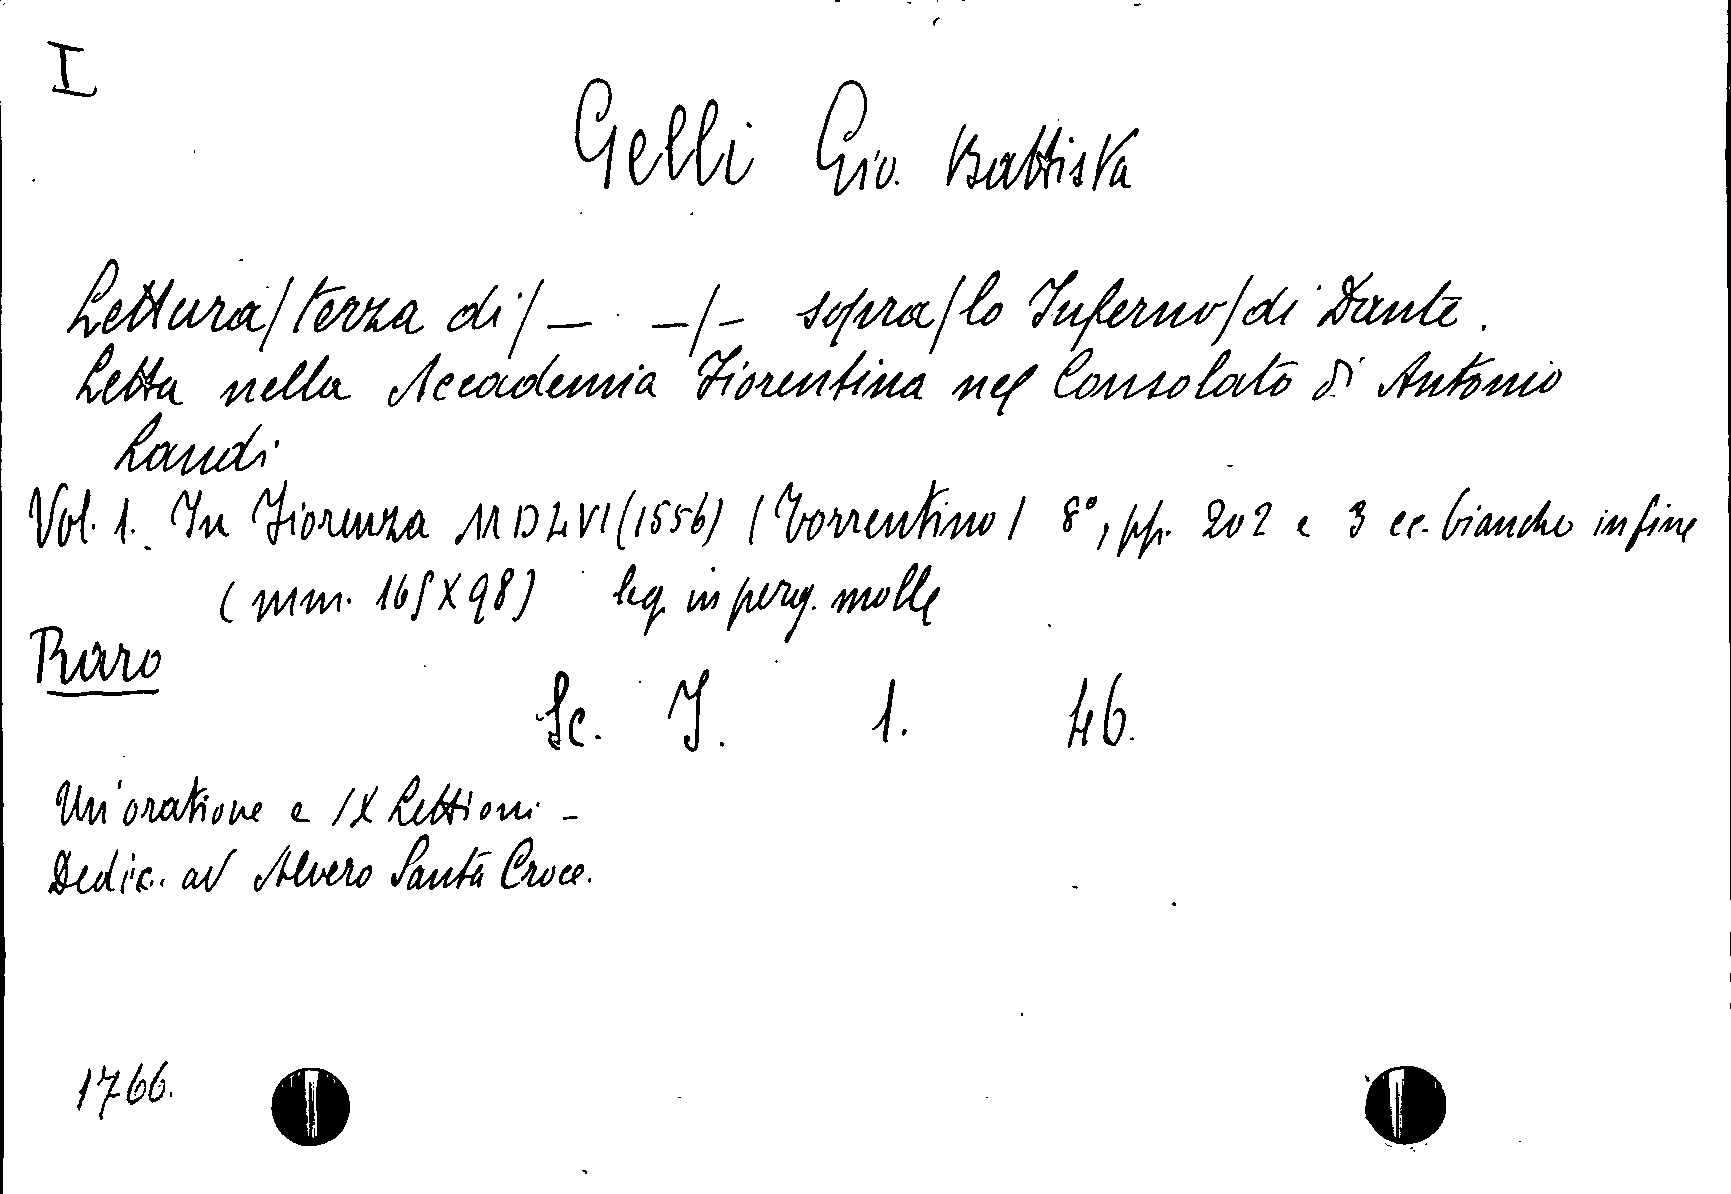 I
Gelli Gio. Battista
Lettura/terza di/_ _/_ sopra/lo Inferno/di Dante.
Letta nella Accademia Fiorentina nel Consolato di Antonio
Landi
Vol. 1. In Fiorenza MDLVI (1556) (Torrentino) 8°, pp. 202 e 3 cc. bianche in fine
(mm. 165X98) leg. in perg. molle
Raro
Sc. I. 1. 46.
Un'oratione e IX Lettioni -
Dedic. ad Alvero Santa Croce.
1766.